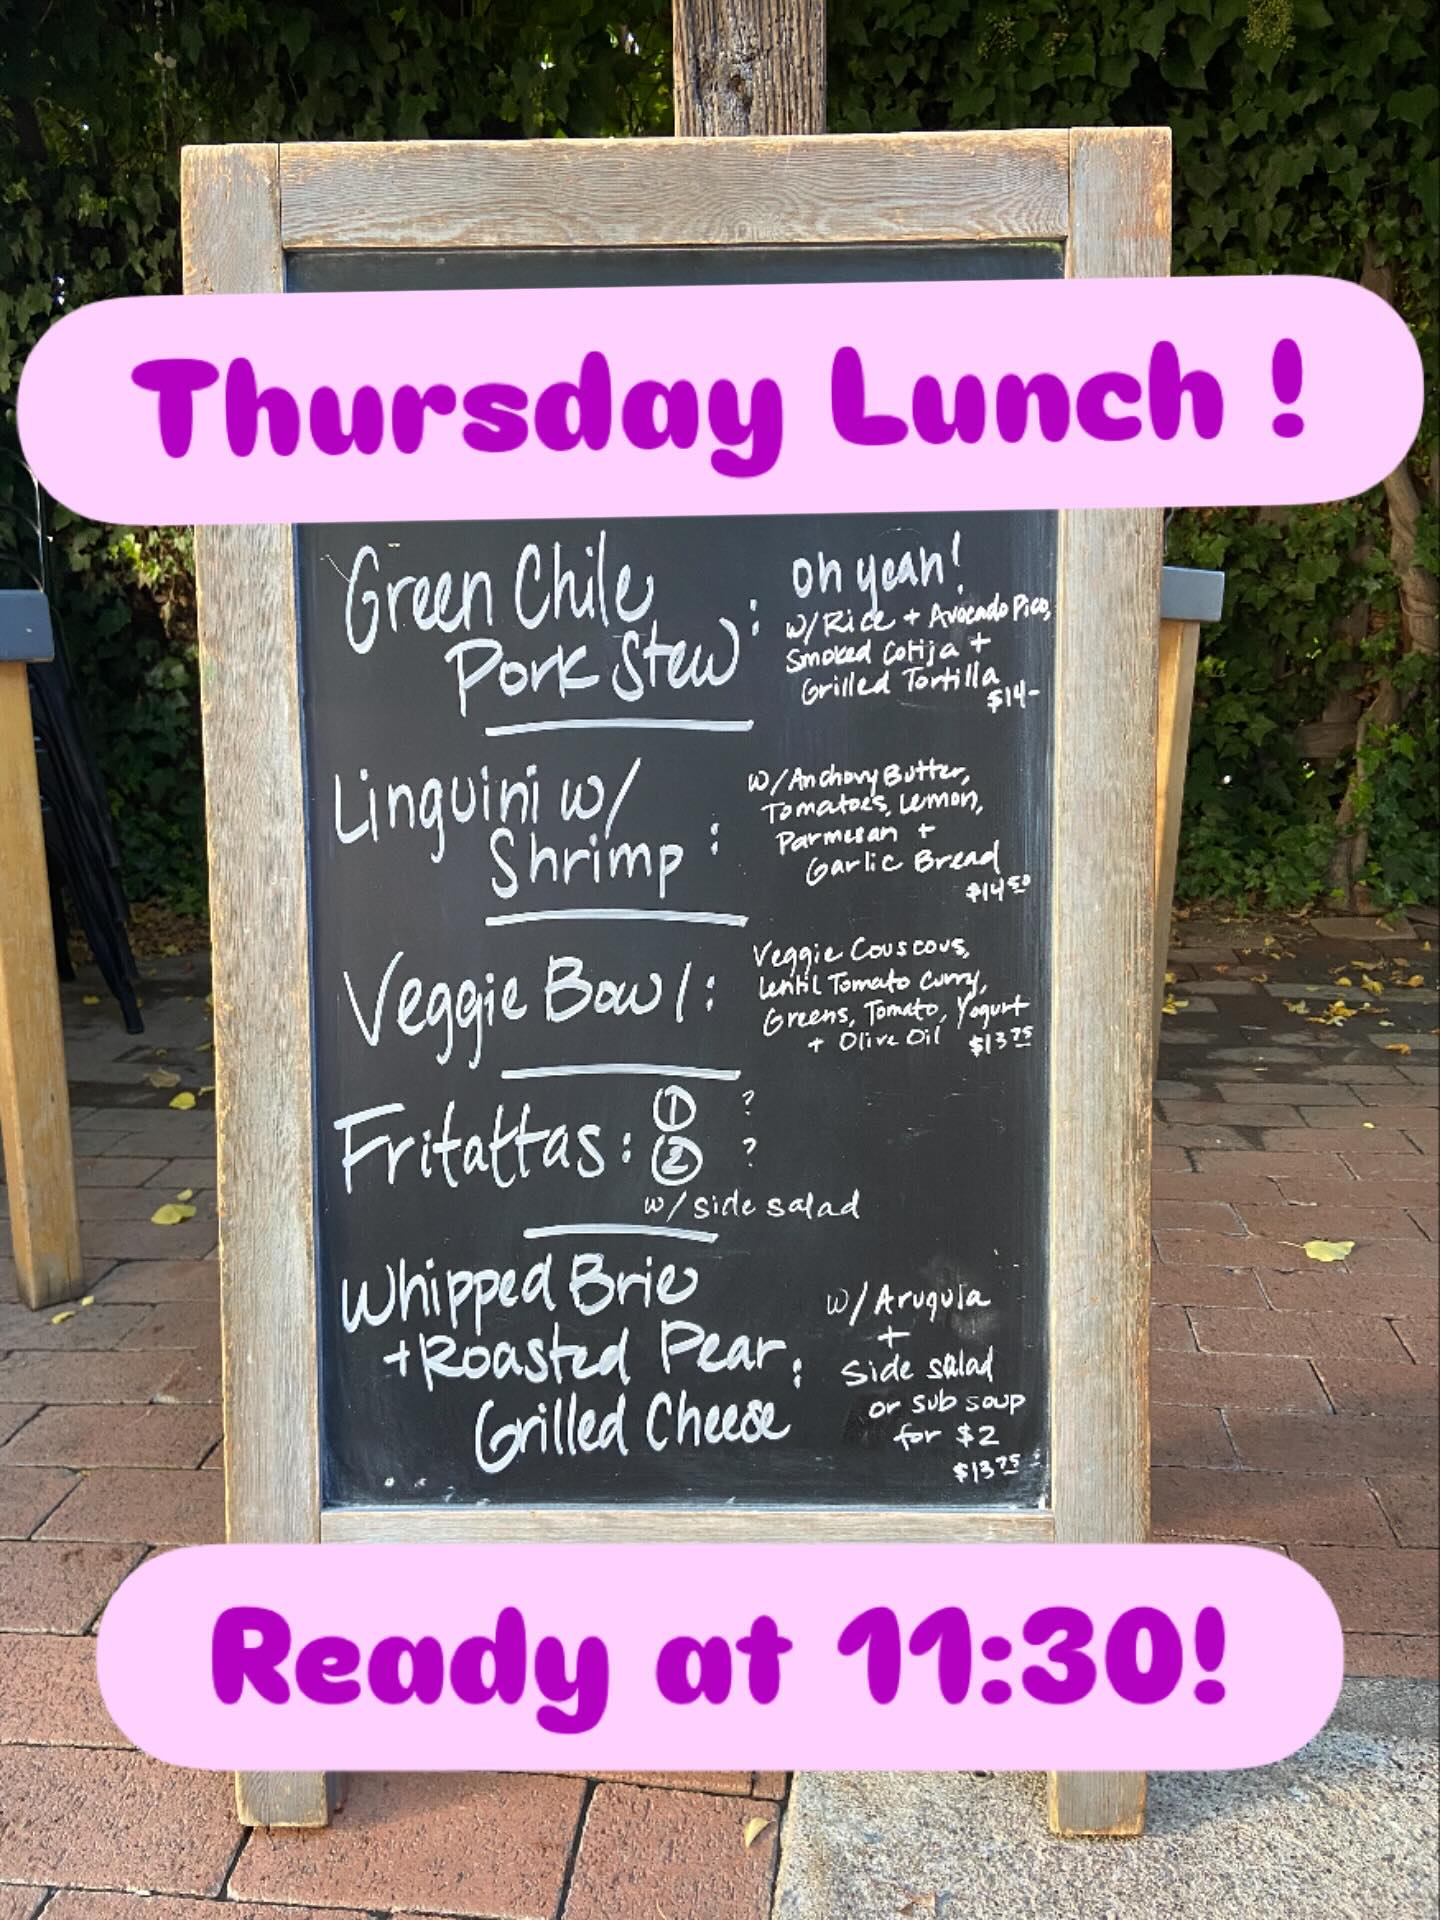 Thursday Lunch !
Green Chile
Pork Stew :
oh yeah!
w/Rice + Avocado Pico,
Smoked Cotija +
Grilled Tortilla
$14-
Linguini w/
Shrimp :
w/Anchovy Butter,
Tomatoes, Lemon,
Parmesan +
Garlic Bread
$14 50
Veggie Bowl :
Veggie Couscous,
Lentil Tomato Curry,
Greens, Tomato, Yogurt
+ Olive Oil $13 75
Fritattas : ① ?
② ?
w/ side salad
Whipped Brie
+Roasted Pear :
Grilled Cheese
w/Arugula
+
Side salad
or sub soup
for $2
$13 75
Ready at 11:30!